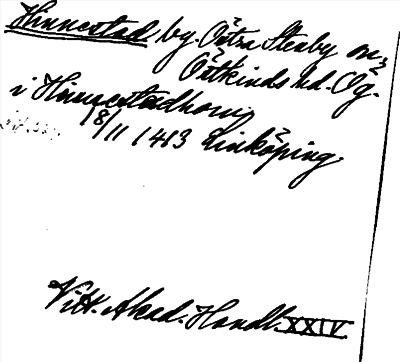 Hinnestad by. Östra Stenby sn,
Östkinds hd. Ög.
i Hinnestadhom
18/11 1413 Linköping.
Vitt. Akad. Handl. XXIV.